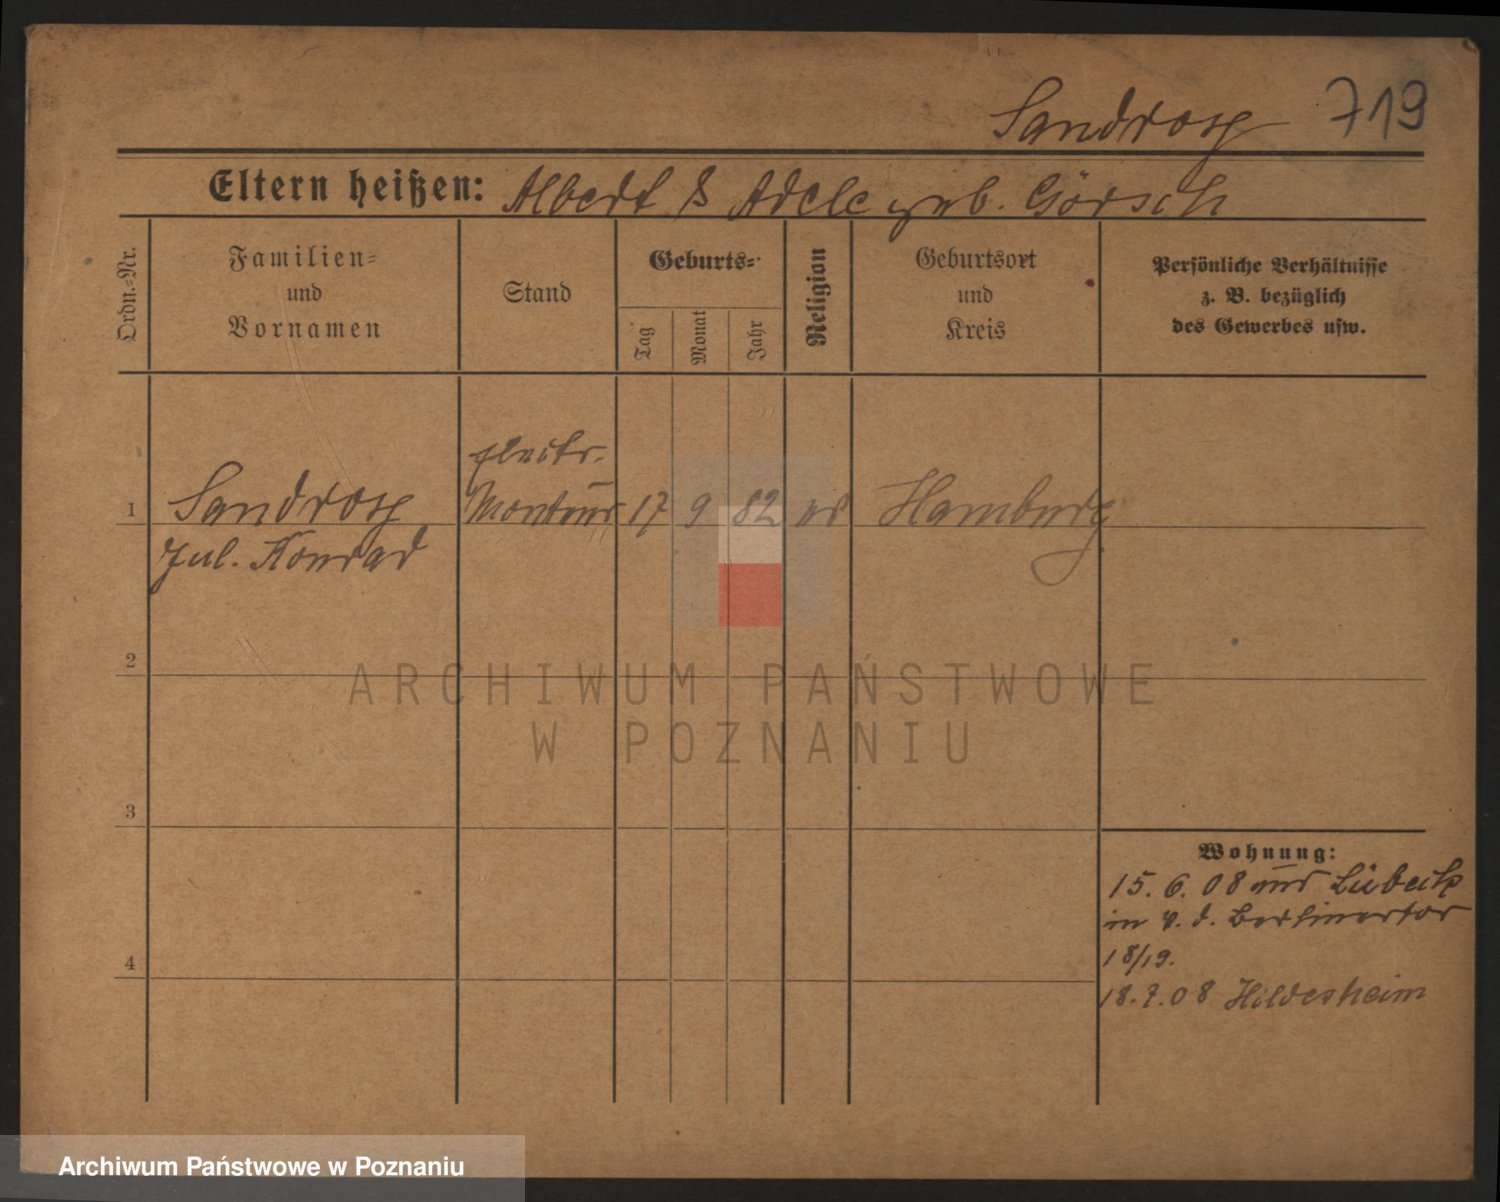 Sandrosch 719
Eltern heißen: Albert & Adele geb. Görsch
Ordn.-Nr.
Familien-
und
Vornamen
Stand
Geburts-
Tag
Monat
Jahr
Religion
Geburtsort
und
Kreis
Persönliche Verhältnisse
z. B. bezüglich
des Gewerbes usw.
electr.
1 Sandrosch Monteur 17 9 82 Hamburg
Jul. Konrad
2
3
4
Wohnung:
15. 6. 08 aus Lübeck
in v. d. Berlinertor
18/19.
18. 08 Hildesheim
ARCHIWUM PAŃSTWOWE
W POZNANIU
Archiwum Państwowe w Poznaniu